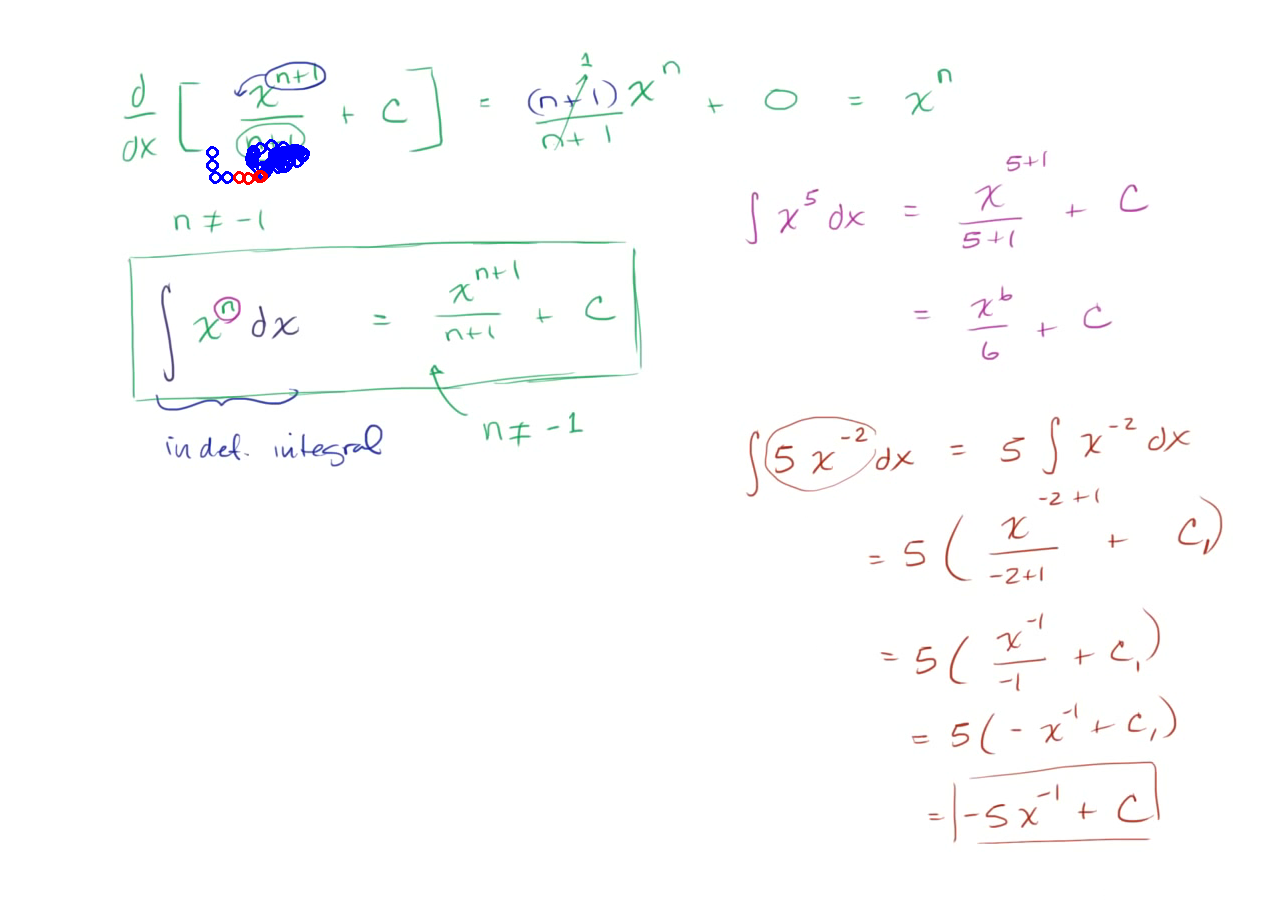 d/dx [ x^(n+1)/(n+1) + C ] = (n+1)x^n/(n+1) 1 + 0 = x^n
n ≠ -1
∫ x^n dx = x^(n+1)/(n+1) + C
n ≠ -1
indef. integral
∫ x^5 dx = x^(5+1)/(5+1) + C
= x^6/6 + C
∫ 5x^(-2) dx = 5 ∫ x^(-2) dx
= 5 ( x^(-2+1)/(-2+1) + C₁ )
= 5 ( x^(-1)/(-1) + C₁ )
= 5 ( - x^(-1) + C₁ )
= -5x^(-1) + C